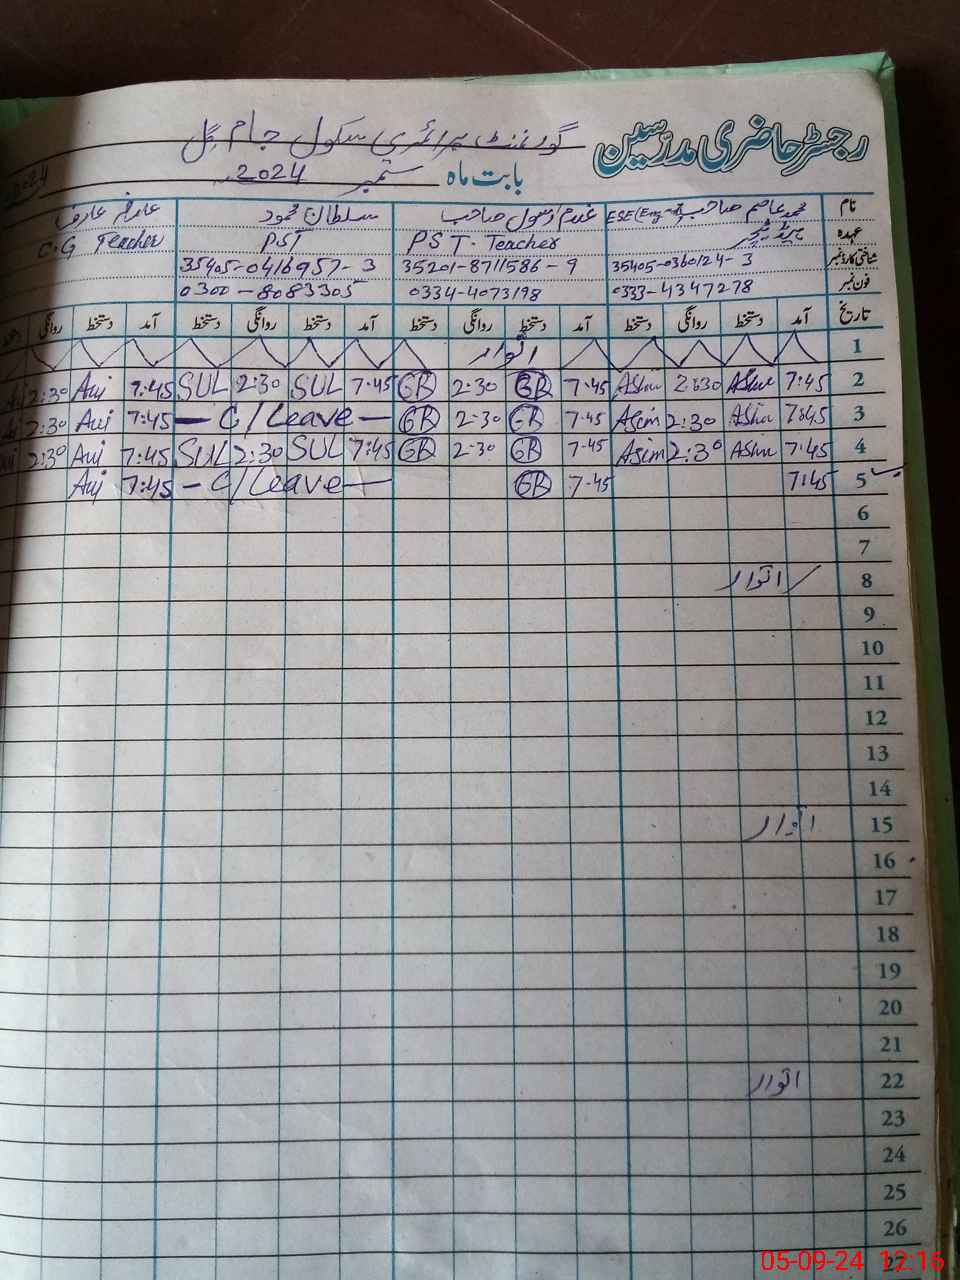 رجسٹر حاضری مدرسین
گورنمنٹ پرائمری سکول جام گِل
بابت ماہ ستمبر 2024ء
2024
نام محمد عاصم صاحب ESE(Eng) غلام رسول صاحب سلطان محمود عارفہ عارف
عہدہ ہیڈ ٹیچر PST. Teacher PST C.G Teacher
شناختی کارڈ نمبر 35405-0360124-3 35201-8711586-9 35405-0416957-3
فون نمبر 0333-4347278 0334-4073198 0300-8083305
تاریخ آمد دستخط روانگی دستخط آمد دستخط روانگی دستخط آمد دستخط روانگی دستخط آمد دستخط روانگی
1 اتوار
2 7:45 Asim 2:30 Asim 7-45 GR 2-30 GR 7:45 SUL 2:30 SUL 7:45 Auj 2:30
3 7:45 Asim 2:30 Asim 7-45 GR 2-30 GR — C/Leave — 7:45 Auj 2:30
4 7:45 Asim 2:30 Asim 7-45 GR 2-30 GR 7:45 SUL 2:30 SUL 7:45 Auj 2:30
5 7:45 7-45 GR — C/Leave — 7:45 Auj
6
7
8 اتوار
9
10
11
12
13
14
15 اتوار
16
17
18
19
20
21
22 اتوار
23
24
25
26
27
05-09-24 12:16